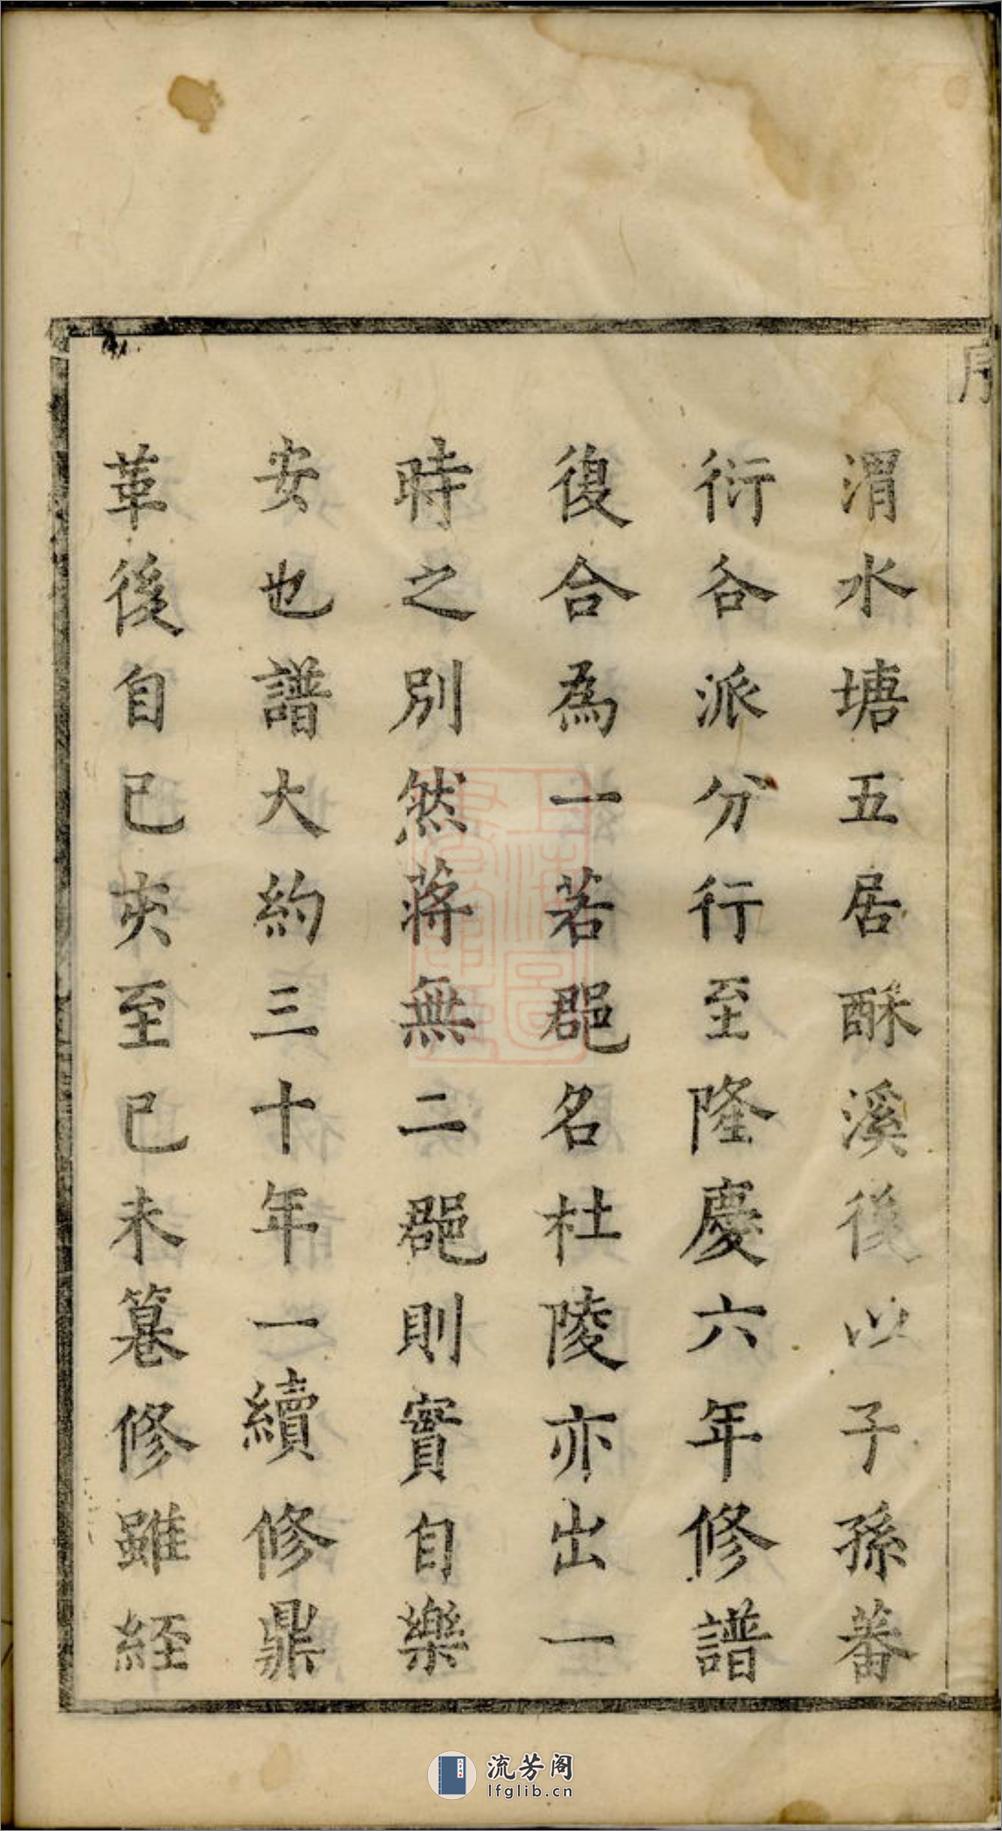 序
渭水塘五居酥溪後以子孫蕃
衍各派分行至隆慶六年修譜
復合為一若郡名杜陵亦出一
時之別然蒋無二郡則實自樂
安也譜大約三十年一續修鼎
革後自己亥至己未纂修雖經
流芳阁
lfglib.cn